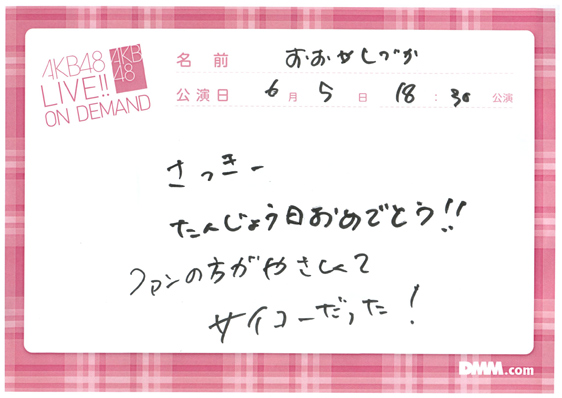 AKB48
LIVE!!
ON DEMAND
AKB
48
名 前 おおやしづか
公演日 6 月 5 日 18 : 30 公演
さっきー
たんじょう日おめでとう!!
ファンの方がやさしくて
サイコーだった!
DMM.com